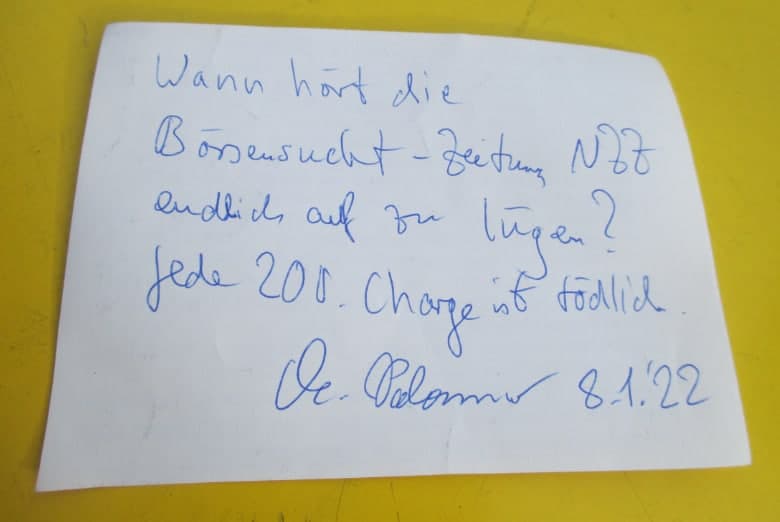 Wann hört die
Börsensucht-Zeitung NZZ
endlich auf zu lügen?
Jede 200. Charge ist tödlich.
8.1.'22